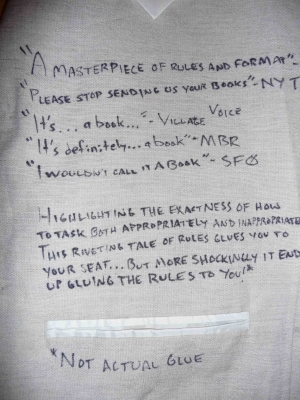 "A MASTERPIECE OF RULES AND FORMAT"-
"PLEASE STOP SENDING US YOUR BOOKS"-NY T
"It's... a book..."- VILLAGE VOICE
"It's definitely... a book"-MBR
"I WOULDN'T CALL IT A BOOK"- SF
HIGHLIGHTING THE EXACTNESS OF HOW
TO TASK BOTH APPROPRIATELY AND INAPPROPRIATE
THIS RIVETING TALE OF RULES GLUES YOU TO
YOUR SEAT... BUT MORE SHOCKINGLY IT END
UP GLUING THE RULES TO YOU!*
*NOT ACTUAL GLUE